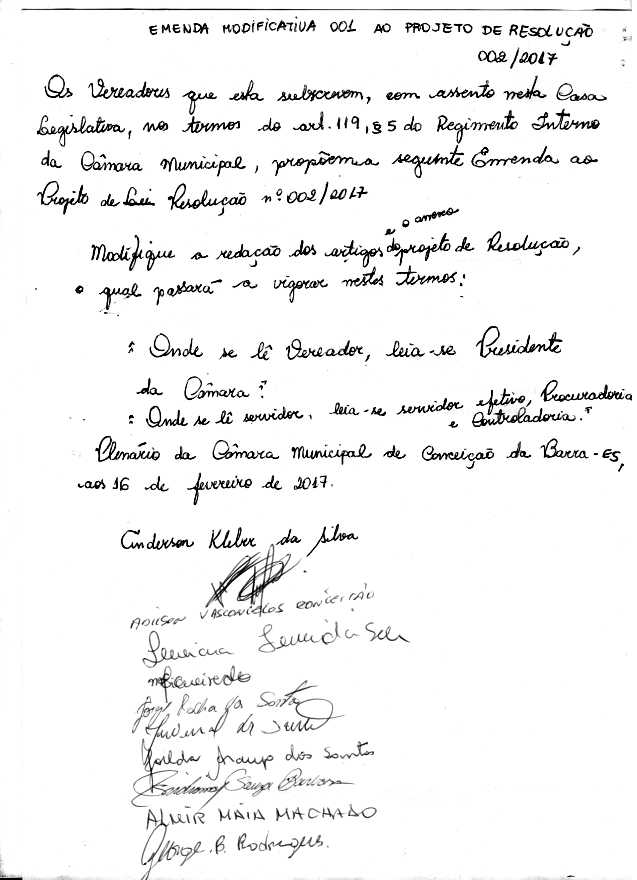 EMENDA MODIFICATIVA 001 AO PROJETO DE RESOLUÇÃO
002/2017
Os Vereadores que esta subscrevem, com assento nesta Casa
Legislativa, nos termos do art. 119, § 5 do Regimento Interno
da Câmara Municipal, propõem a seguinte Emenda ao
Projeto de Lei Resolução nº 002/2017
e o anexo
Modifique a redação dos artigos do projeto de Resolução,
o qual passará a vigorar nestes termos:
" Onde se lê Vereador, leia-se Presidente
da Câmara"
" Onde se lê servidor, leia-se servidor efetivo, Procuradoria
e Controladoria."
Plenário da Câmara Municipal de Conceição da Barra-ES,
aos 16 de fevereiro de 2017.
Anderson Kleber da Silva
ADILSON VASCONCELOS CONCEIÇÃO
mfigueiredo
Jorge Rocha da Santos
Araujo dos Santos
Souza Barbosa
ALMIR MAIA MACHADO
George. B. Rodrigues.